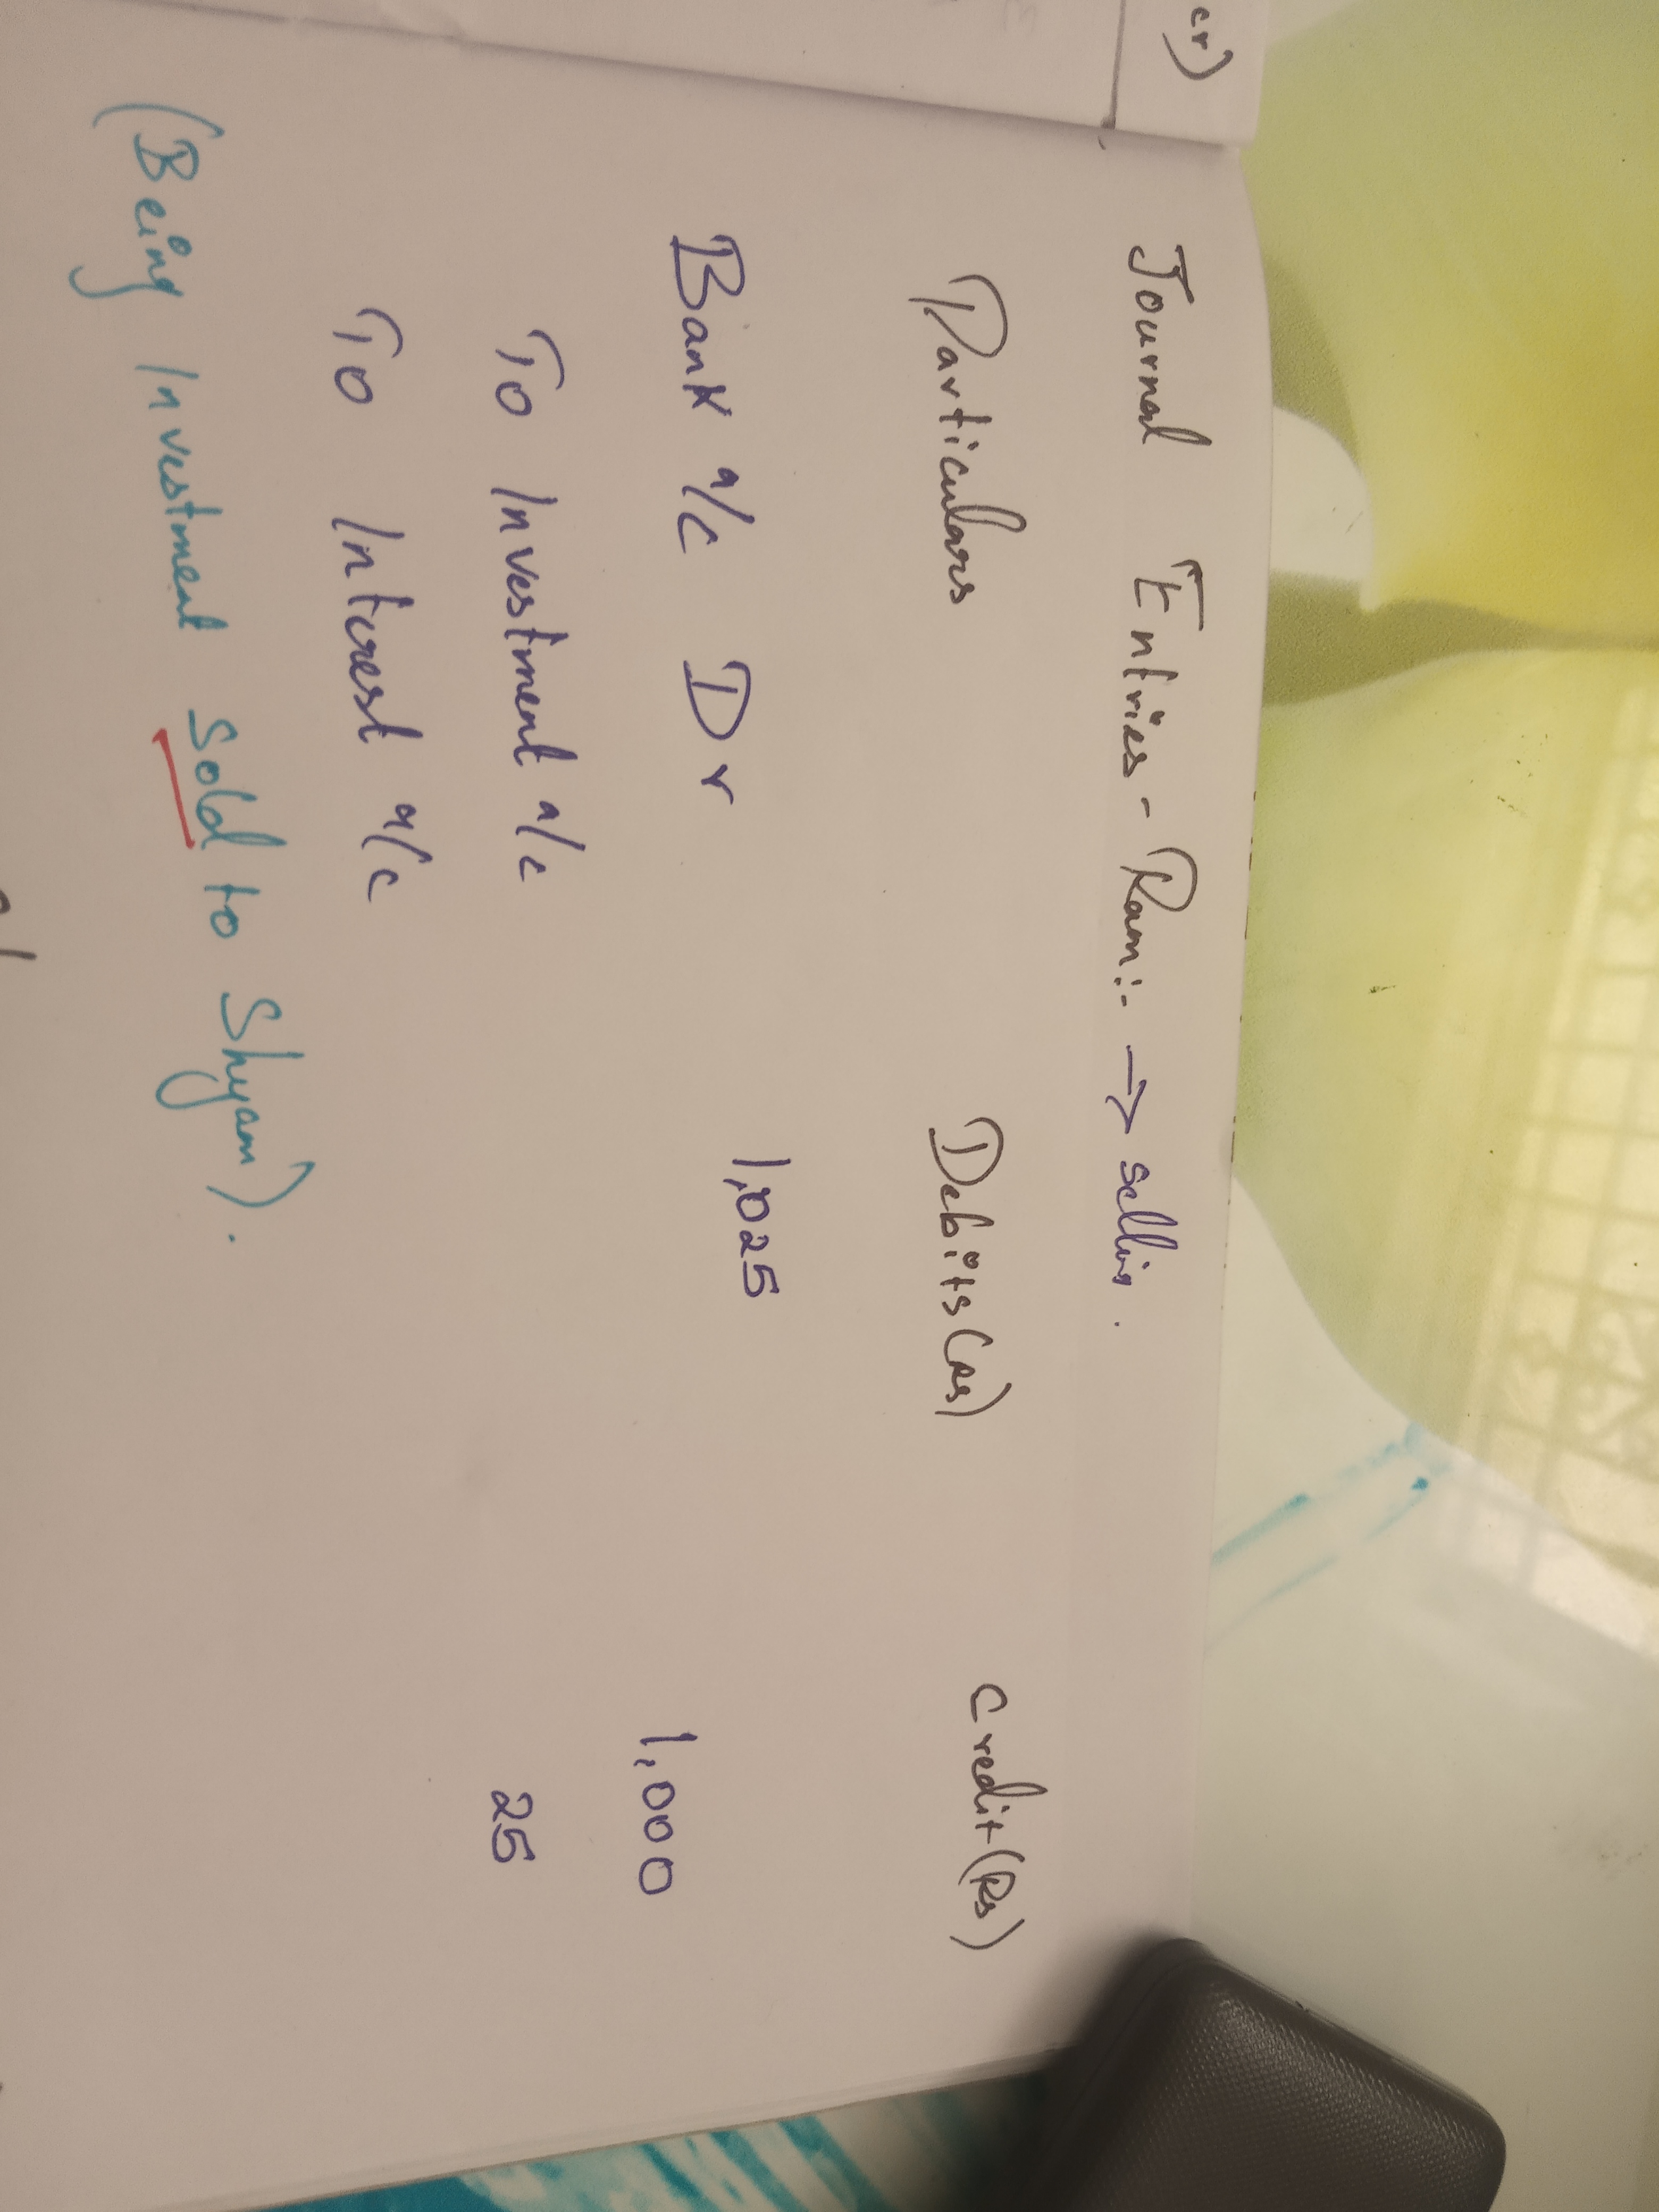 cr)
Journal Entries - Ram :- → sellin.
Particulars Debits (Rs) Credit (Rs)
Bank a/c Dr 1,025
To Investment a/c 1,000
To Interest a/c 25
(Being Investment sold to Shyam).